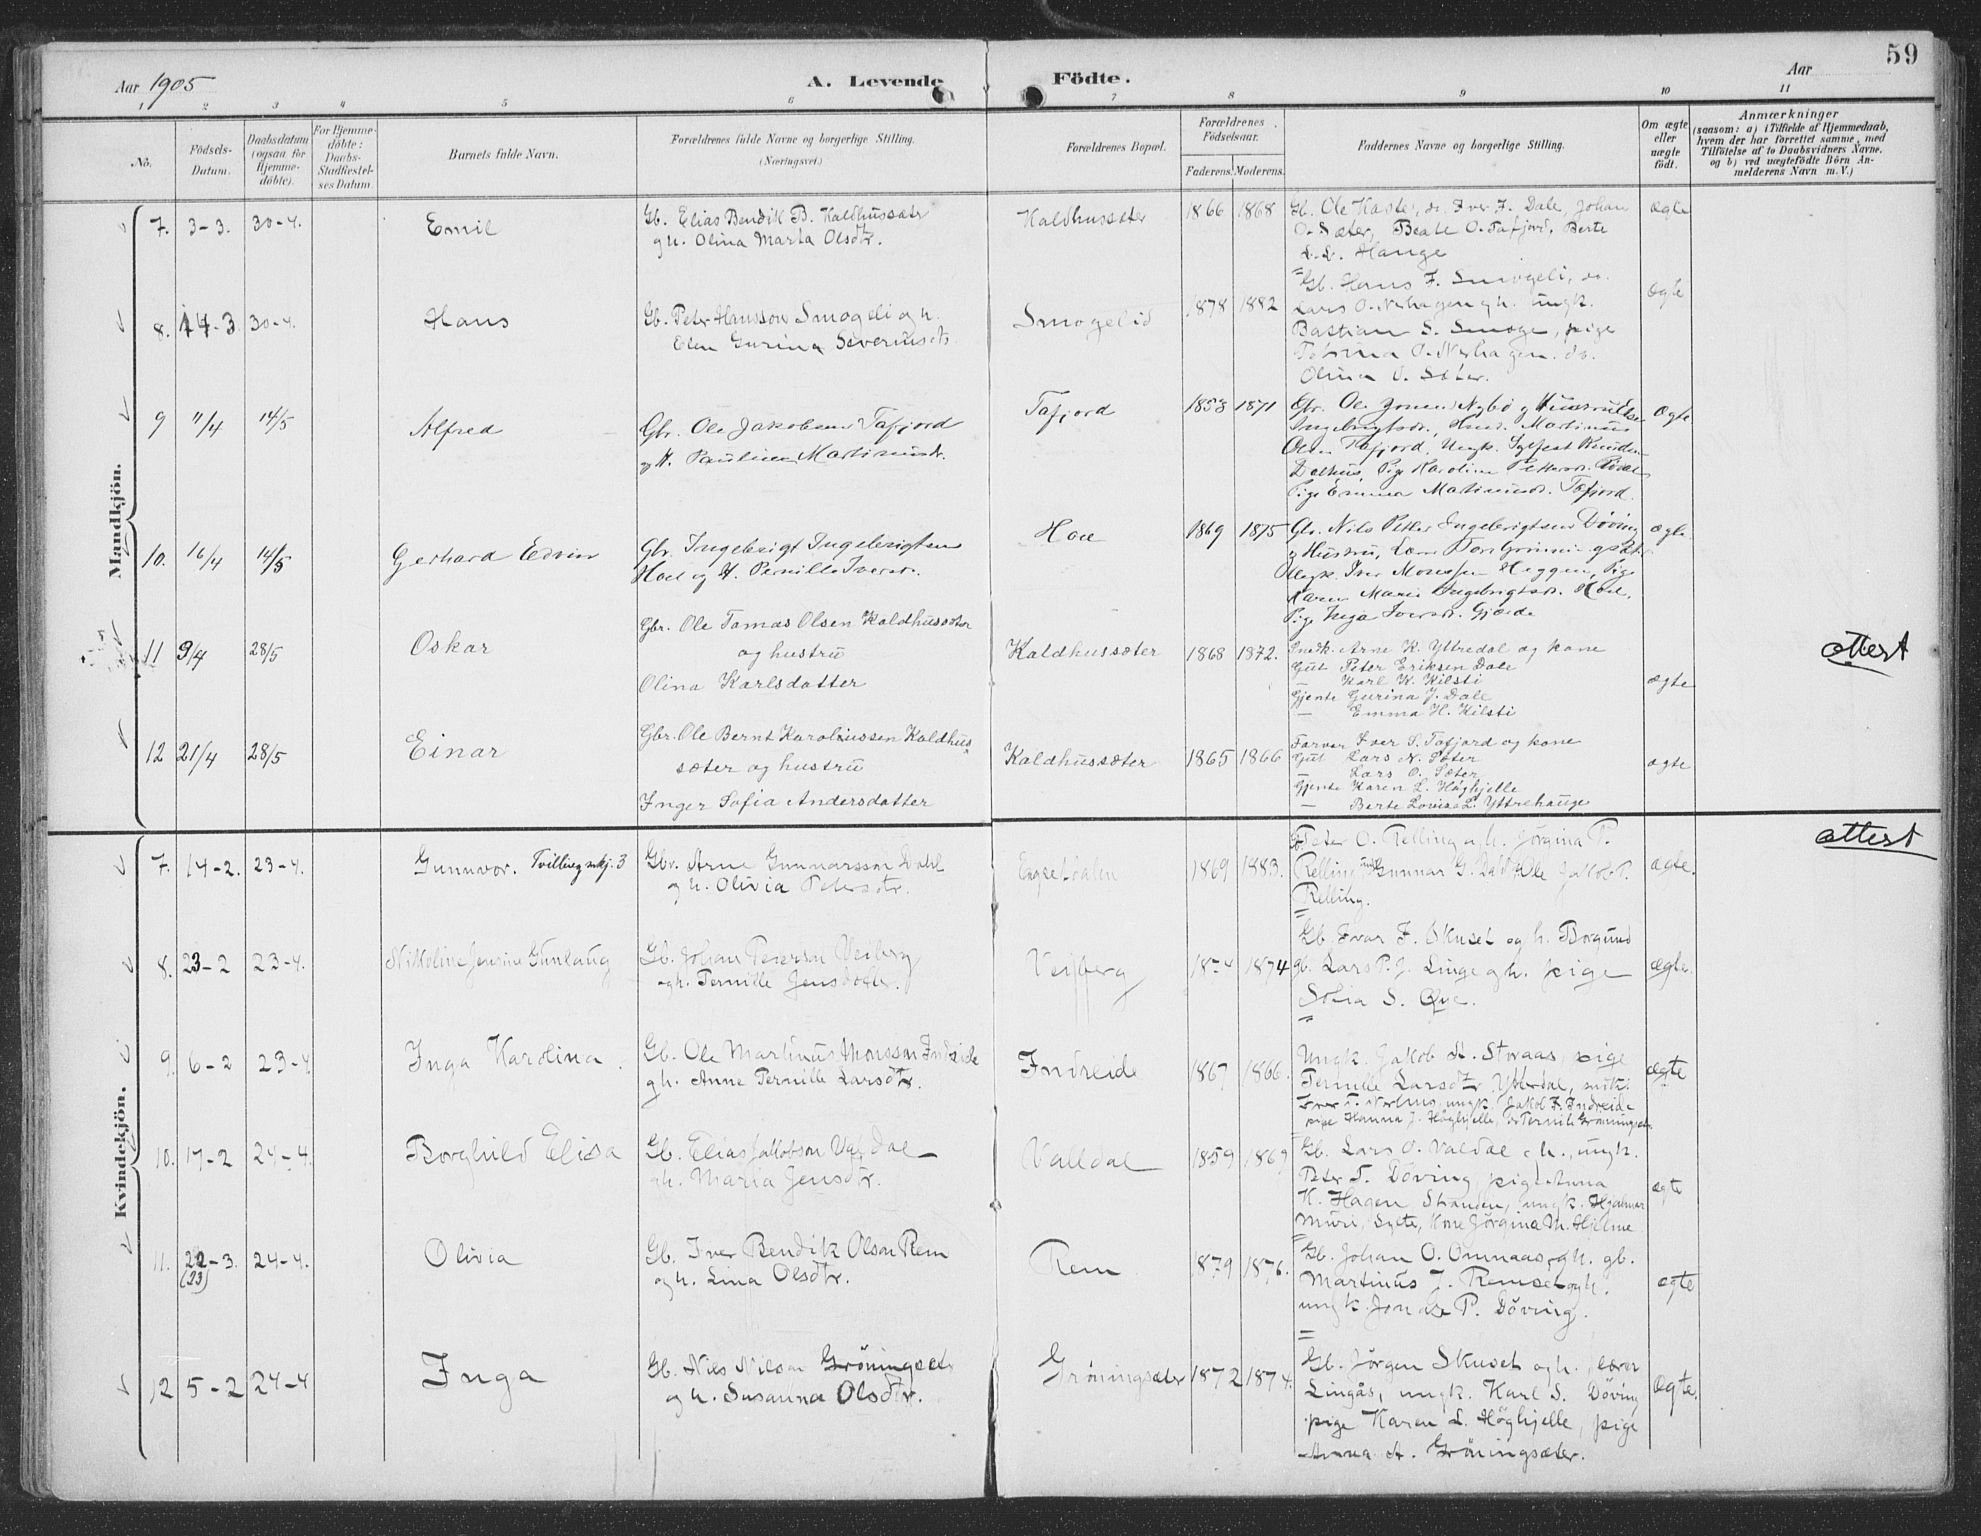 59
Aar 1905
A. Levende Födte.
Aar
1 2 3 4 5 6 7 8 9 10 11
No.
Födsels-Datum.
Daabsdatum (ogsaa for Hjemme-döbte).
For Hjemme-döbte: Daabs-Stadfæstel-ses Datum.
Barnets fulde Navn.
Forældrenes fulde Navne og borgerlige Stilling.
(Næringsvei.)
Forældrenes Bopæl.
Forældrenes Födselsaar.
Faderens. Moderens.
Faddernes Navne og borgerlige Stilling.
Om ægte eller uægte födt.
Anmærkninger
(saasom: a) i Tilfælde af Hjemmedaab,
hvem der har forrettet samme, med
Tilföielse af to Daabsvidners Navne.
og b) ved uægtefödte Börn An-
melderens Navn m. V.)
Mandkjön.
7. 3-3. 30-4. Emil
Gb. Elias Bendik B. Kaldhussæter
gh. Olina Marta Olsdtr.
Kaldhussæter 1866 1868
Gb. Ole Kaste, do. Iver J. Dale, Johan
O. Sæter, Beate O. Tafjord, Berte
L. L. Hauge
ægte
8. 14-3 30-4. Hans
Gb. Peter Hansson Smogeli og h.
Elen Gurina Severinsdtr.
Smogelid 1878 1882
Gb. Hans F. Smogeli, do.
Lars O. Nerhagen gh. ungk.
Bastian S. Smoge, pige
Petrina O. Nerhagen. do.
Olina O. Sæter.
ægte
9 11/4 14/5 Alfred
Gbr. Ole Jakobsen Tafjord
og H. Pauline Martinusdr.
Tafjord 1853 1871
Gbr. Ole Jonsen Nybö og Hustru Else
Ingebrigtsdr., Martinus
Olsen Tafjord, Ungk. Sylfest Knudsen
Dalhus, Pige Karoline Pettersdr.
Pige Emma Martinusdr. Tafjord.
Ægte
10. 16/4 14/5 Gerhard Edvin
Gbr. Ingebrigt Ingebrigtsen
Hoel og H. Pernille Iversdr.
Hoel 1869 1875
Gbr. Nils Petter Ingebrigtsen Döving
og Hustru,
Ungk. Iver Monssen Heggen, Pige
Karen Marie Ingebrigtsdr. Hoel,
Pige Inga Iversdr. Gjærde
ægte
11 9/4 28/5 Oskar
Gbr. Ole Tomas Olsen Kaldhussæter
og hustru
Olina Karlsdatter
Kaldhussæter 1868 1872.
Snedk. Arne K. Yttredal og kone
Gut Peter Eriksen Dale
— Karl K. Kilsti
Gjente Gurina J. Dale
— Emma H. Kilsti
ægte
attest
12 21/4 28/5 Einar
Gbr. Ole Bernt Karoliussen Kaldhus
sæter og hustru
Inger Sofia Andersdatter
Kaldhussæter 1865 1866
Farver Iver S. Tafjord og kone
Gut Lars N. Sæter
— Lars O. Sæter
Gjente Karen L. Höghjelle
— Berte Lovise L. Yttrehauge
ægte
Kvindekjön.
7. 14-2. 23-4. Gunnvor. Tvilling mkj. 3
Gbr. Arne Gunnarsson Dahl
og h. Olivia Petersdtr.
1869 1883.
Peter O. Relling gh. Jörgina P.
Relling, ungk. Gunnar G. Dahl, Ole Jakob P.
Relling.
ægte.
attest
8. 23-2 23-4. Nikoline Jensine Gunlaug
Gb. Johan Peterson Veiberg
og h. Pernille Jensdotter.
Veiberg 1874 1874
Gb. Ivar F. Skuset og h. Borgund
gb. Lars P. J. Linge gh. pige
Sofia S. Öye.
ægte.
9. 6-2 23-4 Inga Karolina.
Gb. Ole Martinus Monsson Indreide
gh. Anne Pernille Larsdtr.
Indreide 1867 1866.
Ungk. Jakob A. Storaas, pige
Pernille Larsdtr Ytterdal,
ungk. Jakob F. Indreide
pige Hanna J. Höghjelle, Pernile Gröningsæter
ægte
10. 17-2 24-4. Borghild Elisa
Gb. Elias Jakobson Valdal
gh. Maria Jensdtr.
Valldal 1859 1869
Gb. Lars O. Valdal gh., ungk.
Peter T. Döving, pige Anna
K. Hagen Stranden, ungk. Hjalmar
Muri, Sylte, Kone Jörgina M. Hjelme
ægte
11. 22-3. (23) 24-4. Olivia
Gb. Iver Bendik Olson Rem
og h. Lina Olsdtr.
Rem 1879 1876.
Gb. Johan O. Omnaas, gh. gb.
Martinus J. Remset og h.
ungk. Jon P. Döving.
ægte
12 5-2 24-4 Inga
Gb. Nils Nilson Gröningsæter
og h. Susanna Olsdtr.
Gröningsæter 1872 1874.
Gb. Jörgen Skuset og h., lærer
Lingås, ungk. Karl S. Döving
pige Karen L. Höghjelle, pige
Anna A. Gröningsæter.
Ægte.